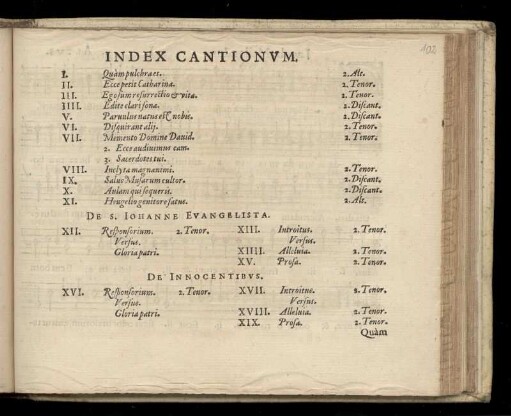 102
INDEX CANTIONVM.
I. Quàm pulchra es. 2. Alt.
II. Ecce petis Catharina. 2. Tenor.
III. Ego sum resurrectio & vita. 2. Tenor.
IIII. Edite clarisona. 2. Discant.
V. Paruulus natus est nobis. 2. Discant.
VI. Disquirant alij. 2. Tenor.
VII. Memento Domine Dauid. 2. Tenor.
2. Ecce audiuimus eam.
3. Sacerdotes tui.
VIII. Inclyta magnanimi. 2. Tenor.
IX. Salue Musarum cultor. 2. Discant.
X. Aulam qui sequeris. 2. Discant.
XI. Heugelio genitore satus. 2. Alt.
DE S. IOHANNE EVANGELISTA.
XII. Responsorium. 2. Tenor. XIII. Introitus. 2. Tenor.
Versus. Versus.
Gloria patri. XIIII. Alleluia. 2. Tenor.
XV. Prosa. 2. Tenor.
DE INNOCENTIBVS.
XVI. Responsorium. 2. Tenor. XVII. Introitus. 2. Tenor.
Versus. Versus.
Gloria patri. XVIII. Alleluia. 2. Tenor.
XIX. Prosa. 2. Tenor.
Quàm